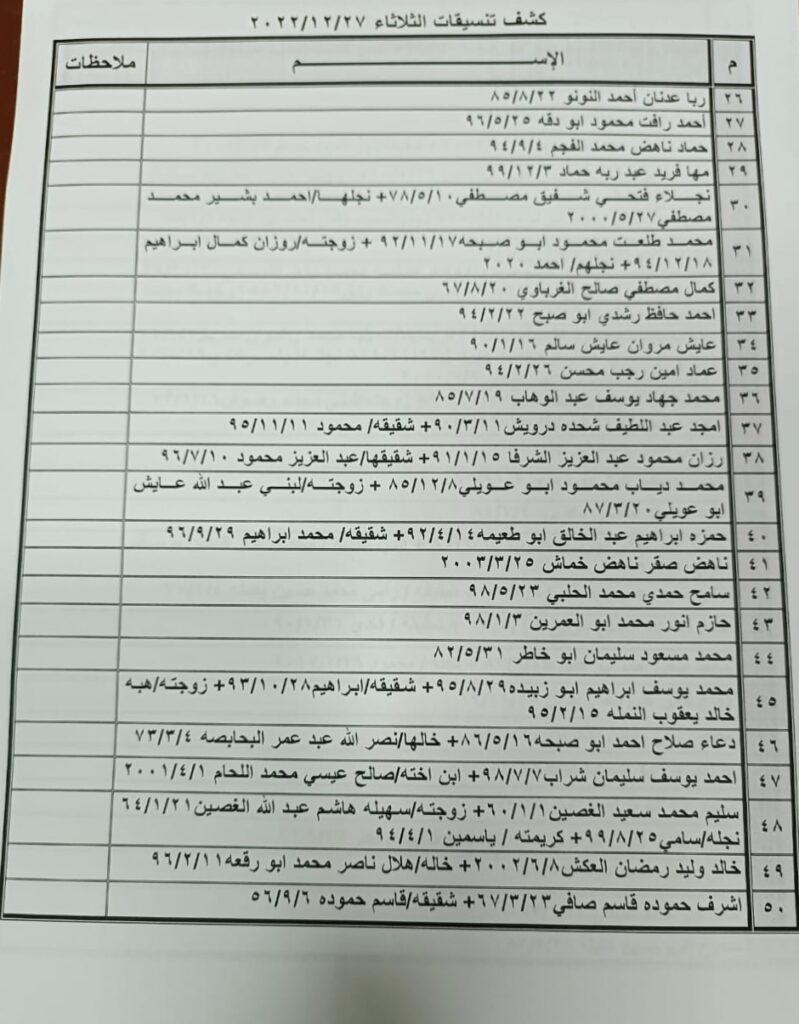 كشف تنسيقات الثلاثاء ٢٠٢٢/١٢/٢٧
م الإســـم ملاحظات
٢٦ ربا عدنان أحمد النونو ٨٥/٨/٢٢
٢٧ أحمد رافت محمود ابو دقه ٩٦/٥/٢٥
٢٨ حماد ناهض محمد الفجم ٩٤/٩/٤
٢٩ مها فريد عبد ربه حماد ٩٩/١٢/٣
٣٠ نجلاء فتحي شفيق مصطفي٧٨/٥/١٠+ نجلها/احمد بشير محمد
مصطفي٢٠٠٠/٥/٢٧
٣١ محمد طلعت محمود ابو صبحه٩٢/١١/١٧ + زوجته/روزان كمال ابراهيم
٩٤/١٢/١٨+ نجلهم/ احمد ٢٠٢٠
٣٢ كمال مصطفي صالح الغرباوي ٦٧/٨/٢٠
٣٣ احمد حافظ رشدي ابو صبح ٩٤/٢/٢٢
٣٤ عايش مروان عايش سالم ٩٠/١/١٦
٣٥ عماد امين رجب محسن ٩٤/٢/٢٦
٣٦ محمد جهاد يوسف عبد الوهاب ٨٥/٧/١٩
٣٧ امجد عبد اللطيف شحده درويش٩٠/٣/١١+ شقيقه/ محمود ٩٥/١١/١١
٣٨ رزان محمود عبد العزيز الشرفا ٩١/١/١٥+ شقيقها/عبد العزيز محمود ٩٦/٧/١٠
٣٩ محمد دياب محمود ابو عويلي٨٥/١٢/٨ + زوجته/لبني عبد الله عايش
ابو عويلي٨٧/٣/٢٠
٤٠ حمزه ابراهيم عبد الخالق ابو طعيمه٩٢/٤/١٤+ شقيقه/ محمد ابراهيم ٩٦/٩/٢٩
٤١ ناهض صقر ناهض خماش ٢٠٠٣/٣/٢٥
٤٢ سامح حمدي محمد الحلبي ٩٨/٥/٢٣
٤٣ حازم انور محمد ابو العمرين ٩٨/١/٣
٤٤ محمد مسعود سليمان ابو خاطر ٨٢/٥/٣١
٤٥ محمد يوسف ابراهيم ابو زبيده٩٥/٨/٢٩+ شقيقه/ابراهيم٩٣/١٠/٢٨+ زوجته/هبه
خالد يعقوب النمله ٩٥/٢/١٥
٤٦ دعاء صلاح احمد ابو صبحه٨٦/٥/١٦+ خالها/نصر الله عبد عمر البحابصه ٧٣/٣/٤
٤٧ احمد يوسف سليمان شراب٩٨/٧/٧+ ابن اخته/صالح عيسي محمد اللحام ٢٠٠١/٤/١
٤٨ سليم محمد سعيد الغصين٦٠/١/١+ زوجته/سهيله هاشم عبد الله الغصين٦٤/١/٢١
نجله/سامي٩٩/٨/٢٥+ كريمته / ياسمين ٩٤/٤/١
٤٩ خالد وليد رمضان العكش٢٠٠٢/٦/٨+ خاله/هلال ناصر محمد ابو رقعه٩٦/٢/١١
٥٠ اشرف حموده قاسم صافي٦٧/٣/٢٣+ شقيقه/قاسم حموده ٥٦/٩/٦